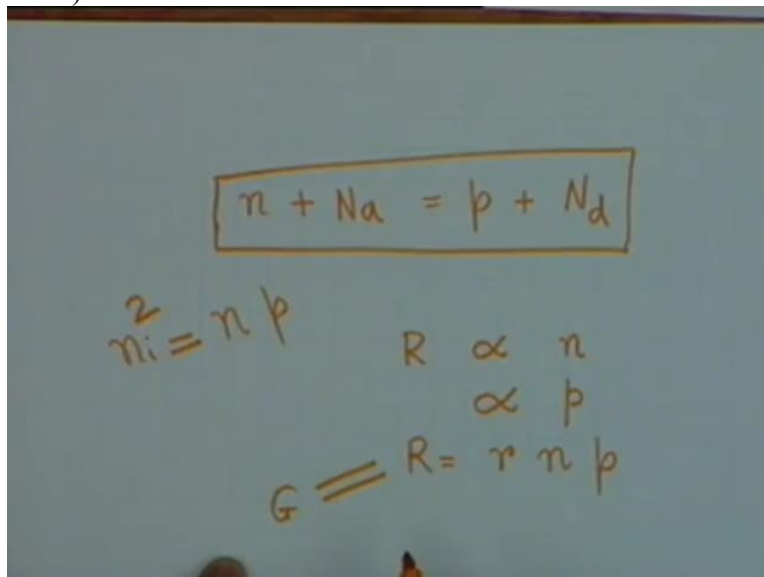 n + Na = p + Nd
ni² = n p
R ∝ n
∝ p
G = R = r n p